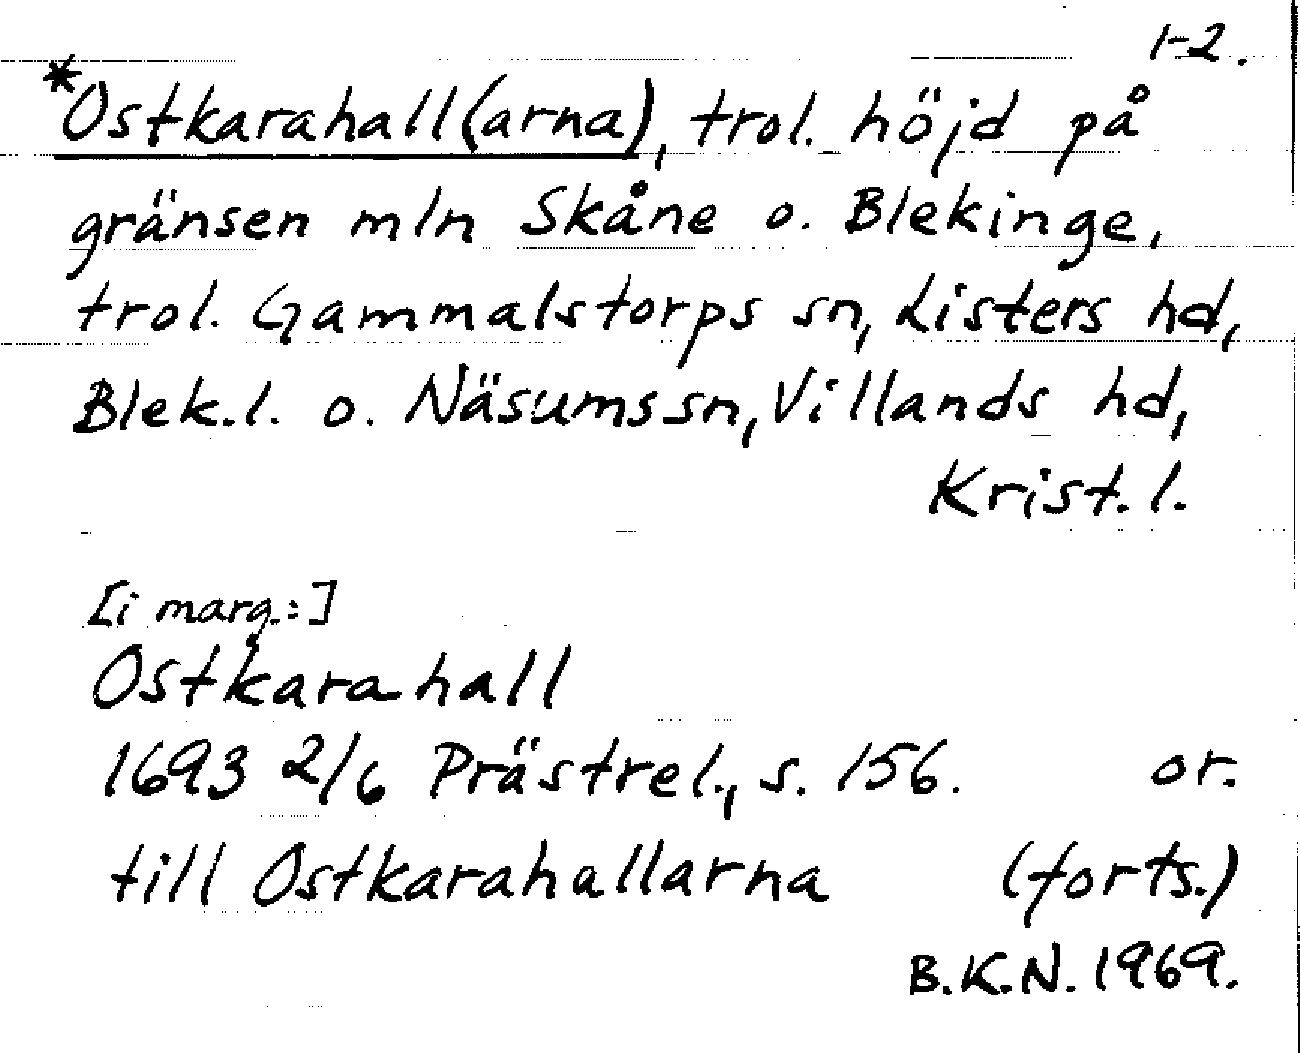 1-2.
*Ostkarahall(arna), trol. höjd på
gränsen mln Skåne o. Blekinge,
trol. Gammalstorps sn, Listers hd,
Blek.l. o. Näsums sn, Villands hd,
Krist.l.
[i marg.:]
Ostkarahall
1693 2/6 Prästrel., s. 156. or.
till Ostkarahallarna (forts.)
B.K.N. 1969.